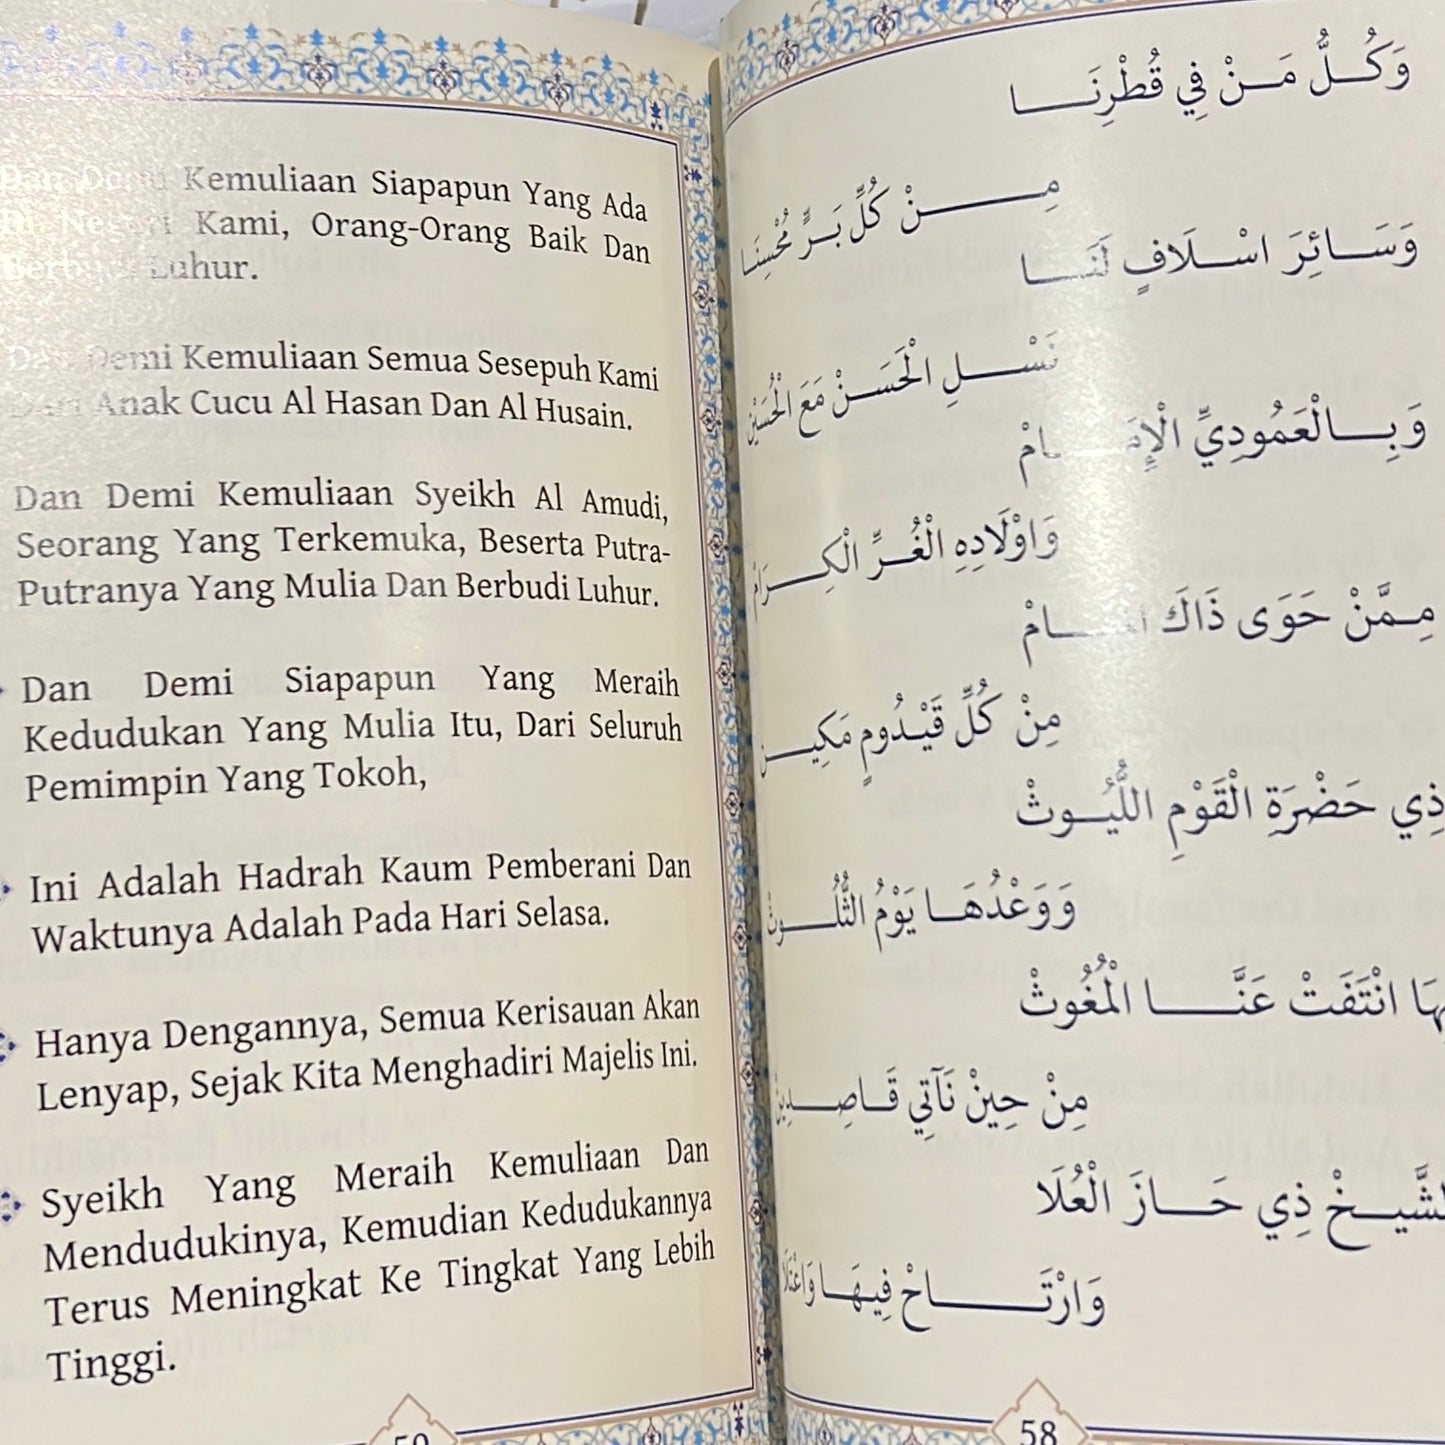 وَكُلُّ مَنْ فِي قُطْرِنَا
مِنْ كُلِّ بَرٍّ مُحْسِنَا
وَسَائِرَ اسْلَافٍ لَنَا
نَسْلِ الْحَسَنْ مَعَ الْحُسَيْن
وَبِالْعَمُودِيِّ الْإِمَامْ
وَاوْلَادِهِ الْغُرِّ الْكِرَامْ
مِمَّنْ حَوَى ذَاكَ
مِنْ كُلِّ قَيْدُومٍ مَكِين
ذِي حَضْرَةِ الْقَوْمِ اللُّيُوثْ
وَوَعْدُهَا يَوْمُ الثُّلُوثْ
بِهَا انْتَفَتْ عَنَّا الْمُغُوثْ
مِنْ حِيْنْ نَآتِي قَاصِدِين
الشَّيخْ ذِي حَازَ الْعُلَا
وَارْتَاحْ فِيهَا وَاعْتَلَا
58
Dan Demi Kemuliaan Siapapun Yang Ada
Di Negeri Kami, Orang-Orang Baik Dan
Berbudi Luhur.
Dan Demi Kemuliaan Semua Sesepuh Kami
Dari Anak Cucu Al Hasan Dan Al Husain.
Dan Demi Kemuliaan Syeikh Al Amudi,
Seorang Yang Terkemuka, Beserta Putra-
Putranya Yang Mulia Dan Berbudi Luhur.
Dan Demi Siapapun Yang Meraih
Kedudukan Yang Mulia Itu, Dari Seluruh
Pemimpin Yang Tokoh,
Ini Adalah Hadrah Kaum Pemberani Dan
Waktunya Adalah Pada Hari Selasa.
Hanya Dengannya, Semua Kerisauan Akan
Lenyap, Sejak Kita Menghadiri Majelis Ini.
Syeikh Yang Meraih Kemuliaan Dan
Mendudukinya, Kemudian Kedudukannya
Terus Meningkat Ke Tingkat Yang Lebih
Tinggi.
59